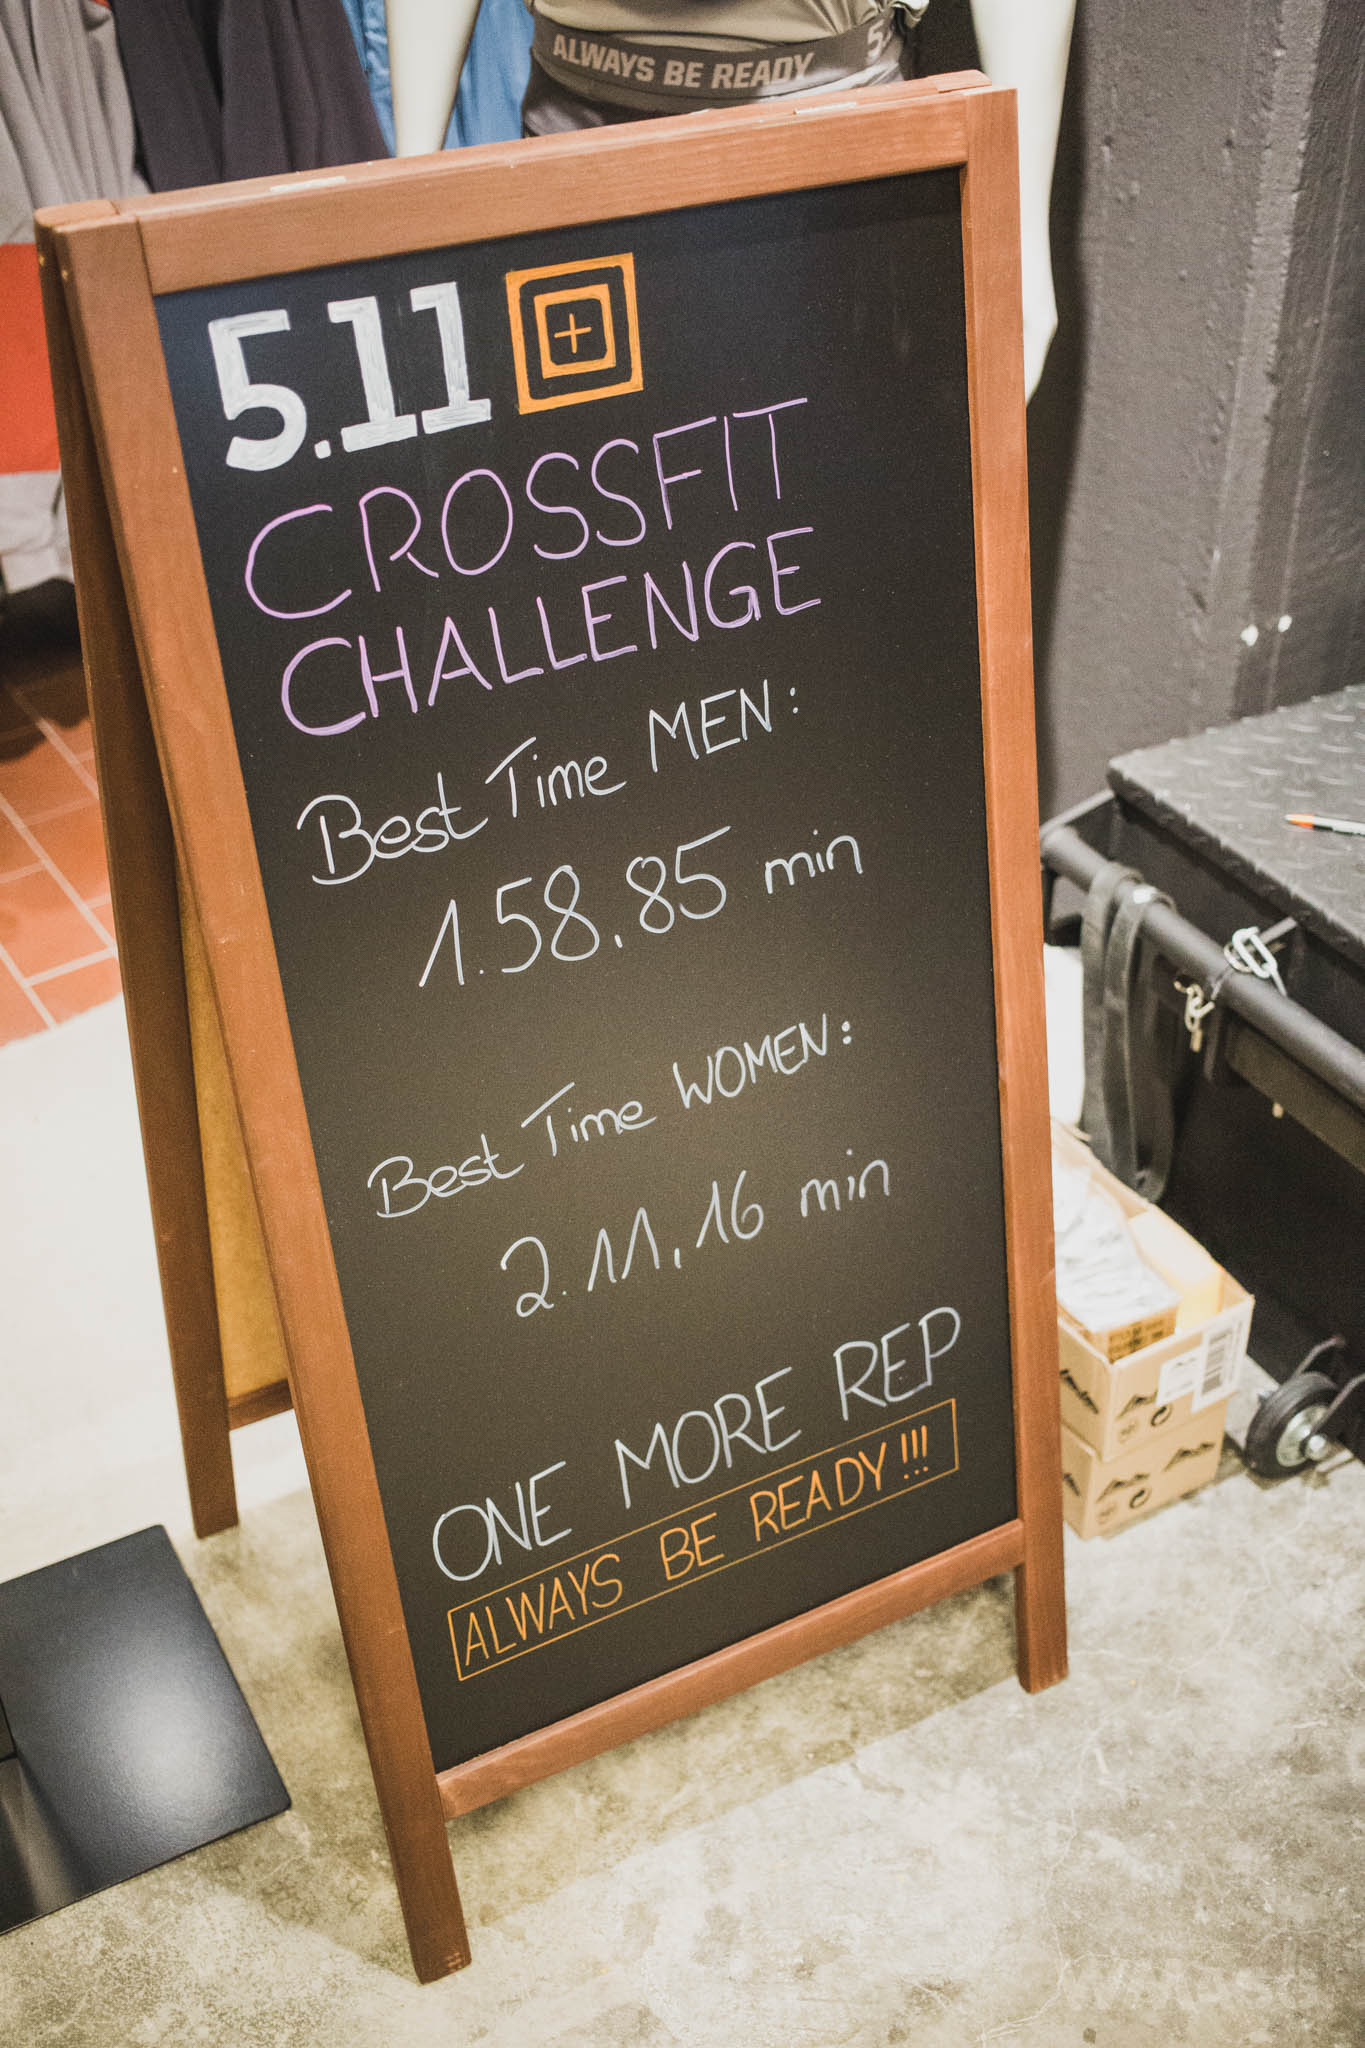 ALWAYS BE READY 5.
5.11
CROSSFIT
CHALLENGE
Best Time MEN:
1.58,85 min
Best Time WOMEN:
2.11,16 min
ONE MORE REP
ALWAYS BE READY!!!